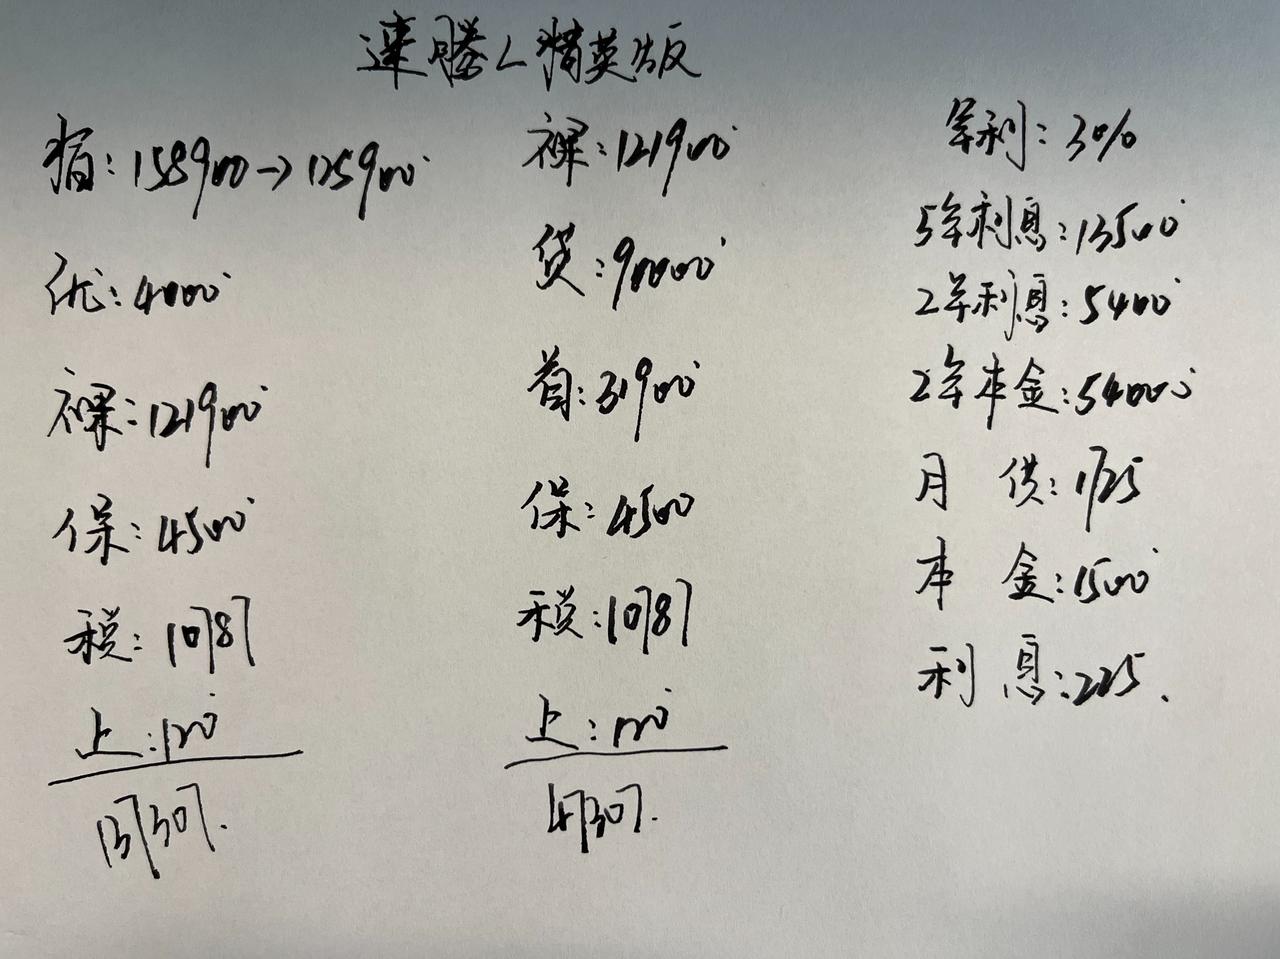 速腾L精英版
指:158900→125900
优:4000
裸:121900
保:4500
税:10787
上:120
137307.
裸:121900
贷:90000
首:31900
保:4500
税:10787
上:120
47307.
年利:3%
5年利息:13500
2年利息:5400
2年本金:54000
月供:1725
本金:1500
利息:225.